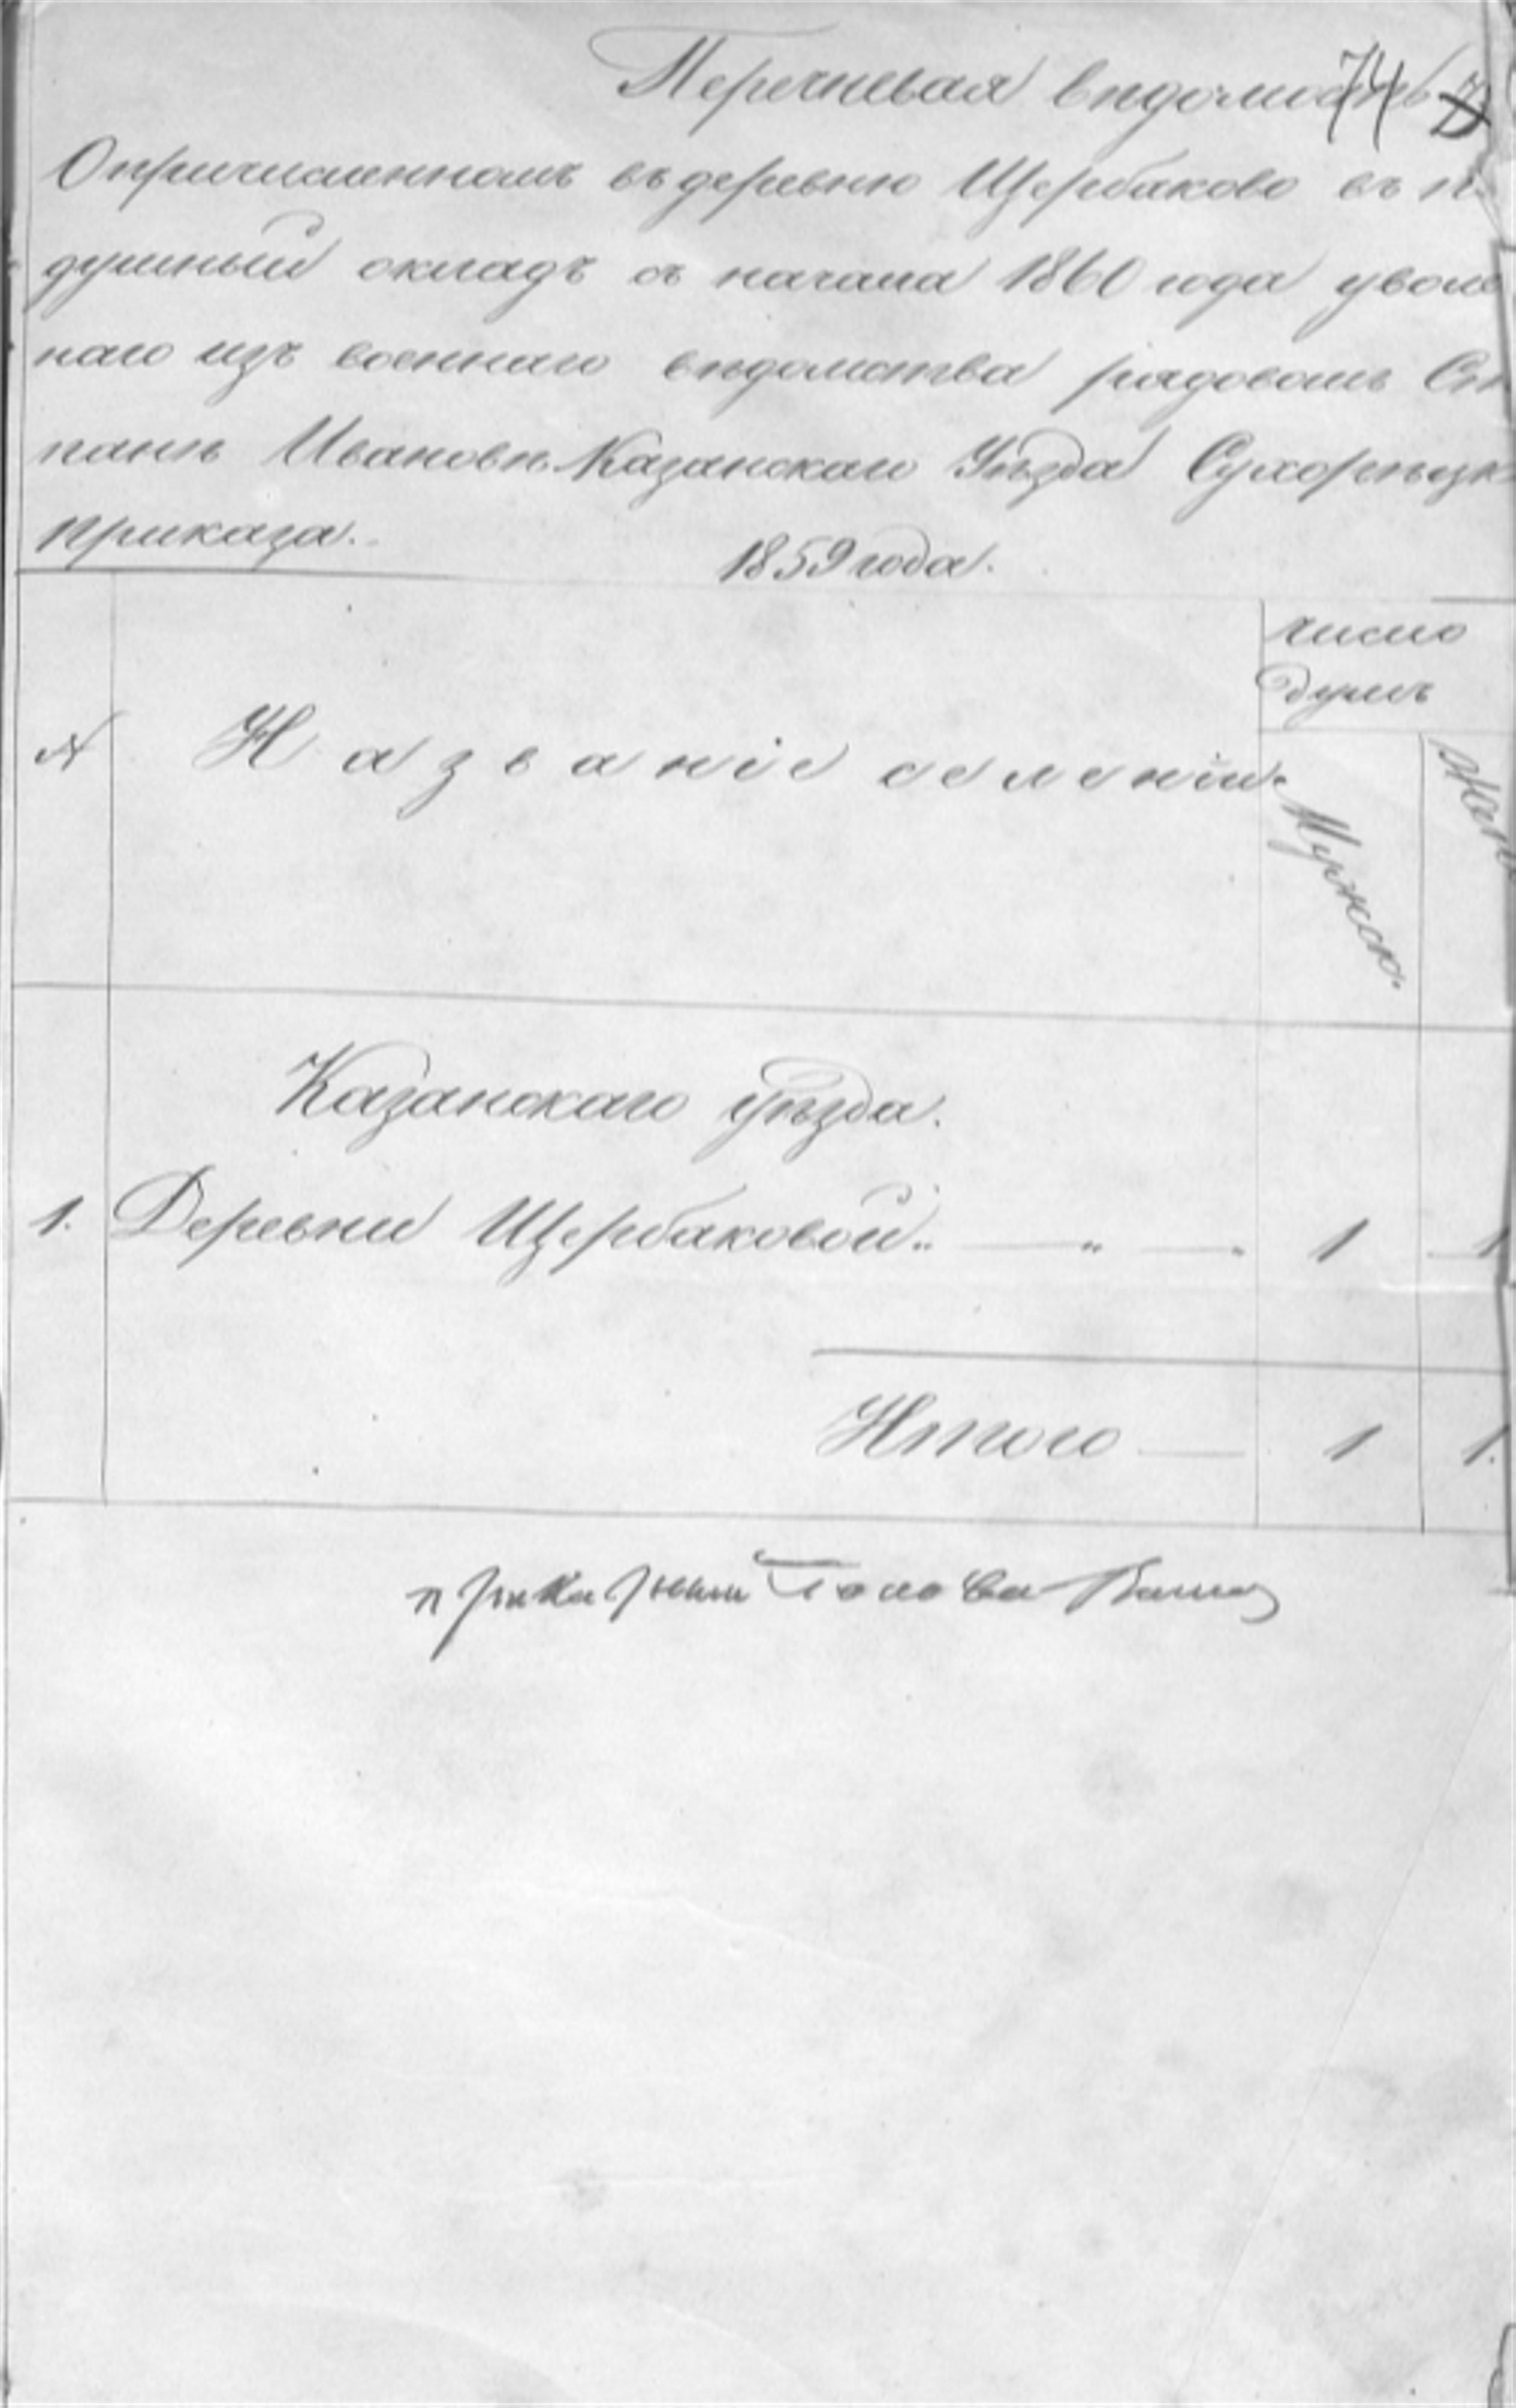 Перечневая ведомость 74
О причисленномъ въ деревню Щербаково въ п
душный окладъ съ начала 1860 года увол
наго изъ военнаго вѣдомства рядовомъ Сте
панѣ Ивановѣ Казанскаго Уѣзда Сухорѣцк
приказа.
1859 года.
число
душъ
№ Названіе селеніи.
Мужско.
Жен
Казанскаго уѣзда.
1. Деревни Щербаковой „ — „ — 1 1
Итого — 1 1.
Голова